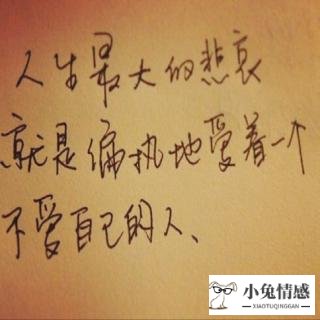 人生最大的悲哀
就是偏执地爱着一个
不爱自己的人、
小兔情感
XIAOTUQINGGAN